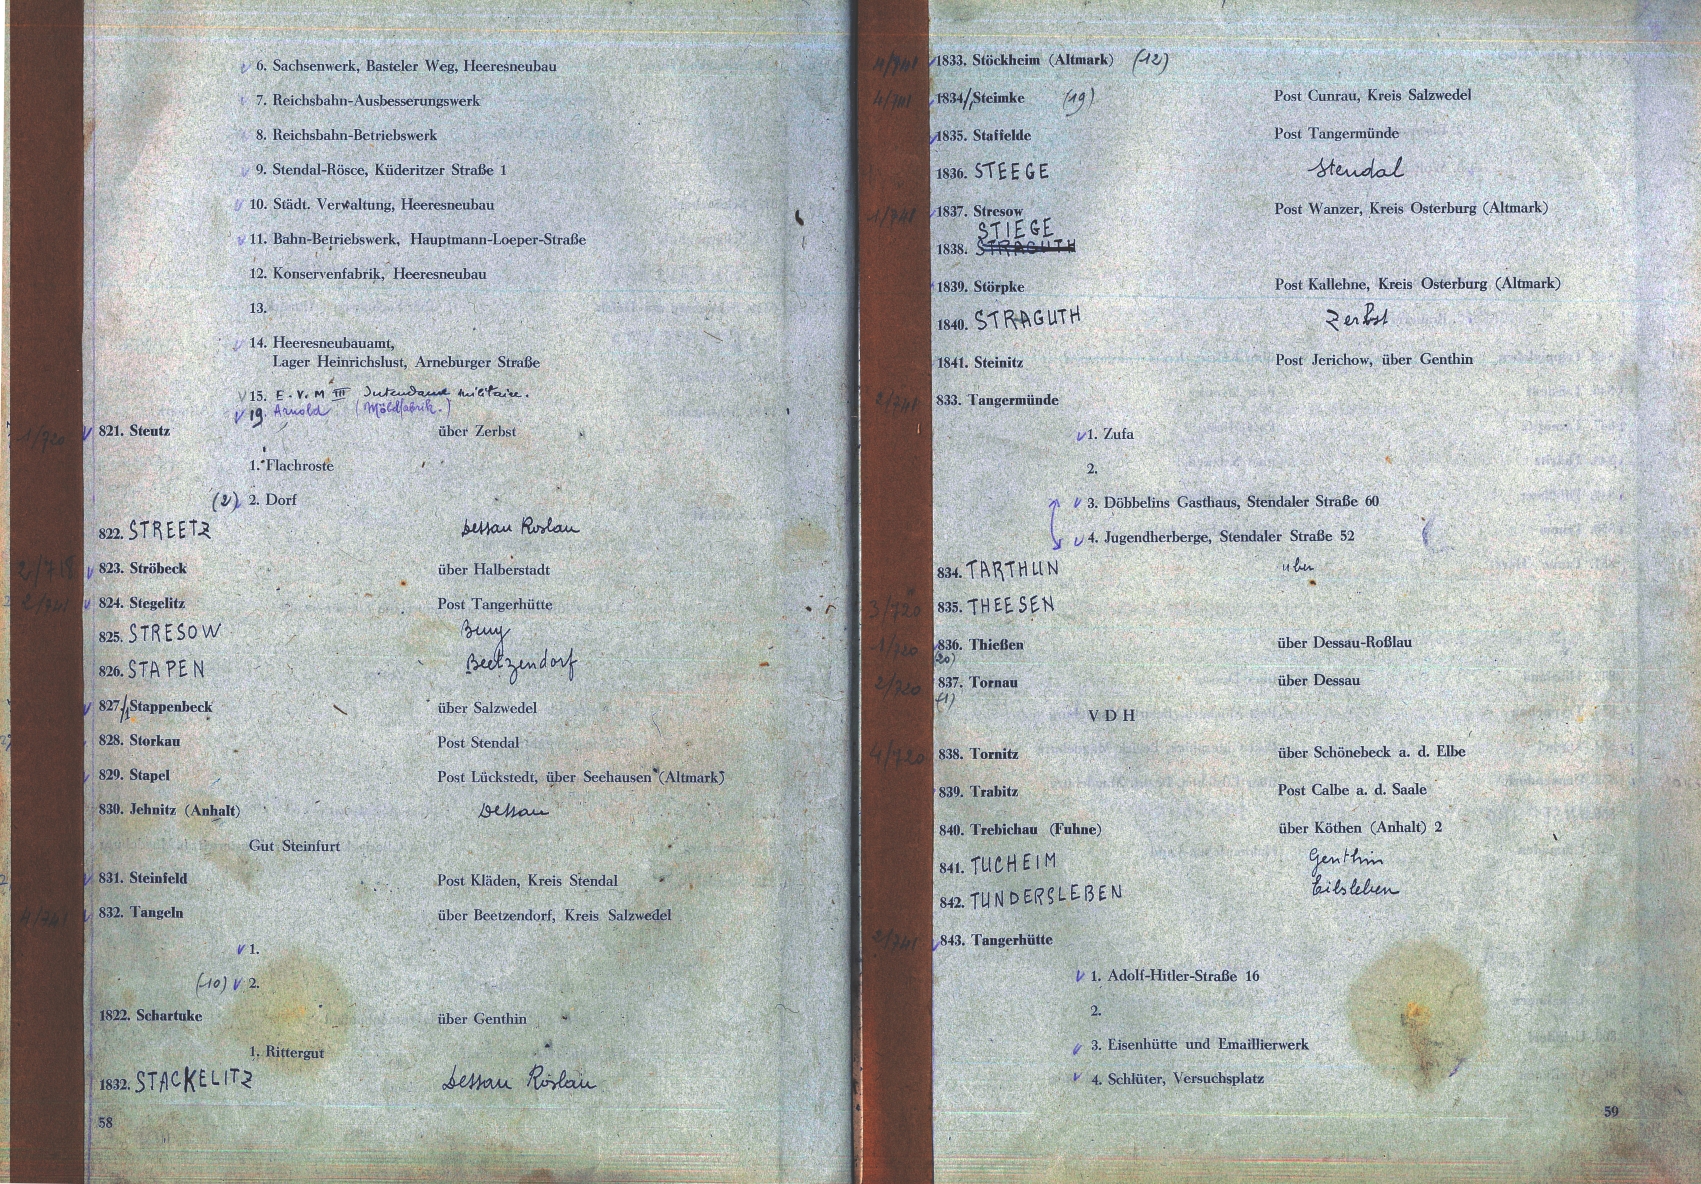 6. Sachsenwerk, Basteler Weg, Heeresneubau
7. Reichsbahn-Ausbesserungswerk
8. Reichsbahn-Betriebswerk
9. Stendal-Rösce, Küderitzer Straße 1
10. Städt. Verwaltung, Heeresneubau
11. Bahn-Betriebswerk, Hauptmann-Loeper-Straße
12. Konservenfabrik, Heeresneubau
13.
14. Heeresneubauamt,
Lager Heinrichslust, Arneburger Straße
15. E. V. M III Intendance militaire.
19. Arnold (Möldfabrik.)
1/720 821. Steutz über Zerbst
1. Flachroste
(2) 2. Dorf
822. STREETZ Dessau Roslau
2/718 823. Ströbeck über Halberstadt
2/741 824. Stegelitz Post Tangerhütte
825. STRESOW Burg
826. STAPEN Beetzendorf
827/1 Stappenbeck über Salzwedel
828. Storkau Post Stendal
829. Stapel Post Lückstedt, über Seehausen (Altmark)
830. Jehnitz (Anhalt) Dessau
Gut Steinfurt
831. Steinfeld Post Kläden, Kreis Stendal
4/741 832. Tangeln über Beetzendorf, Kreis Salzwedel
1.
(10) 2.
1822. Schartuke über Genthin
1. Rittergut
1832. STACKELITZ Dessau Roslau
58
4/741 1833. Stöckheim (Altmark) (12)
4/741 1834/1 Steimke (19) Post Cunrau, Kreis Salzwedel
1835. Staffelde Post Tangermünde
1836. STEEGE Stendal
1/741 1837. Stresow Post Wanzer, Kreis Osterburg (Altmark)
STIEGE
1838. STRAGUTH
1839. Störpke Post Kallehne, Kreis Osterburg (Altmark)
1840. STRAGUTH Zerbst
1841. Steinitz Post Jerichow, über Genthin
2/741 833. Tangermünde
1. Zufa
2.
3. Döbbelins Gasthaus, Stendaler Straße 60
4. Jugendherberge, Stendaler Straße 52
834. TARTHUN über
3/720 835. THEESEN
1/720 836. Thießen über Dessau-Roßlau
(20)
2/720 837. Tornau über Dessau
(1)
V D H
4/720 838. Tornitz über Schönebeck a. d. Elbe
839. Trabitz Post Calbe a. d. Saale
840. Trebichau (Fuhne) über Köthen (Anhalt) 2
841. TUCHEIM Genthin
842. TUNDERSLEBEN Eilsleben
2/741 843. Tangerhütte
1. Adolf-Hitler-Straße 16
2.
3. Eisenhütte und Emaillierwerk
4. Schlüter, Versuchsplatz
59